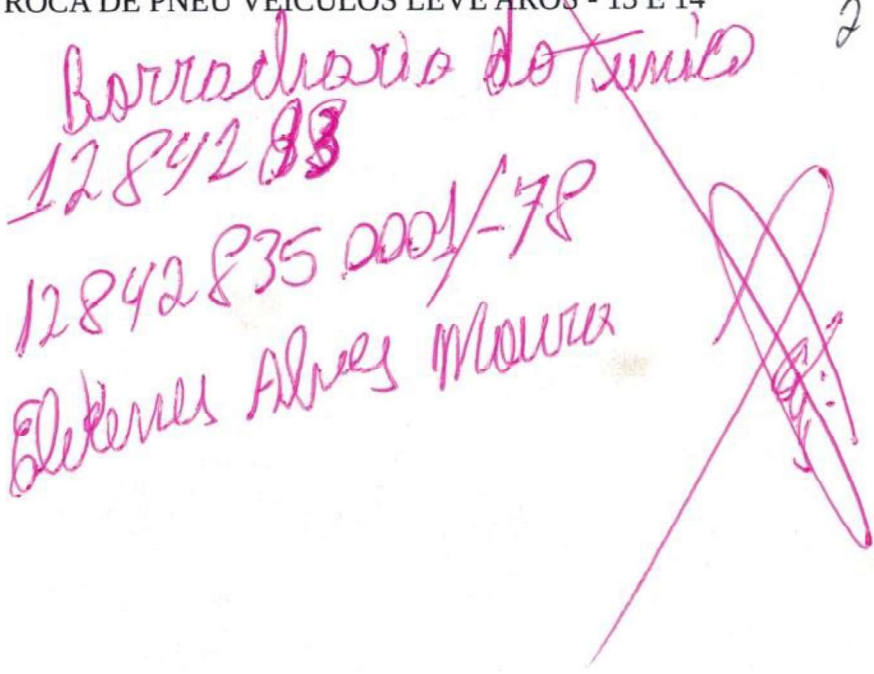 ROCA DE PNEU VEICULOS LEVE AROS - 13 E 14
2
Borracharia do Tunico
12842833
12842835 0001/-78
Alves Moura